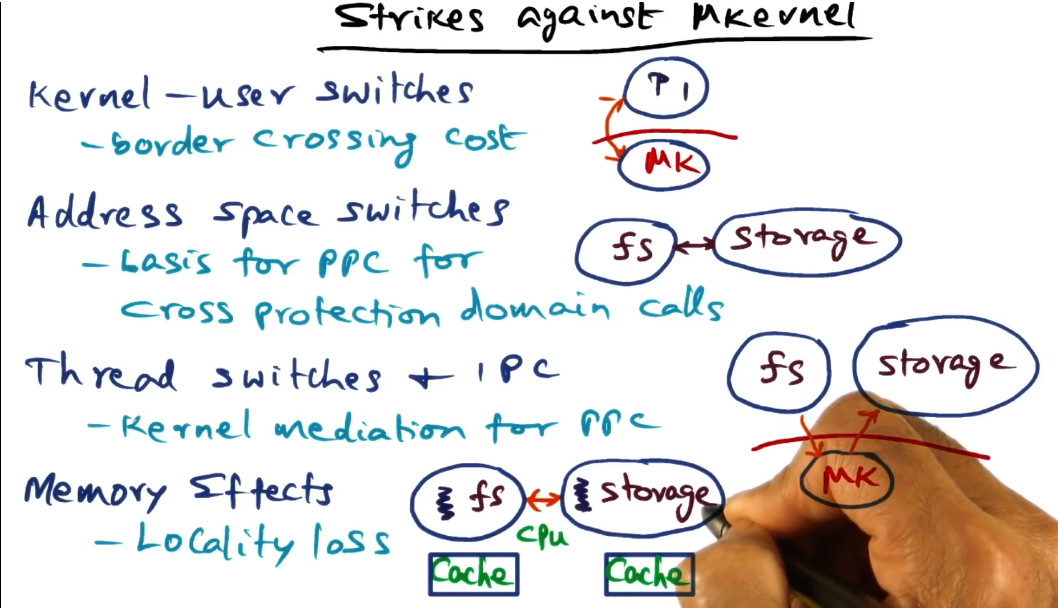 Strikes against μkernel
Kernel-user switches
- border crossing cost
P1
μK
Address space switches
- basis for PPC for
cross protection domain calls
fs
storage
Thread switches + IPC
- Kernel mediation for PPC
fs
storage
μK
Memory Effects
- Locality loss
fs
storage
CPU
Cache
Cache